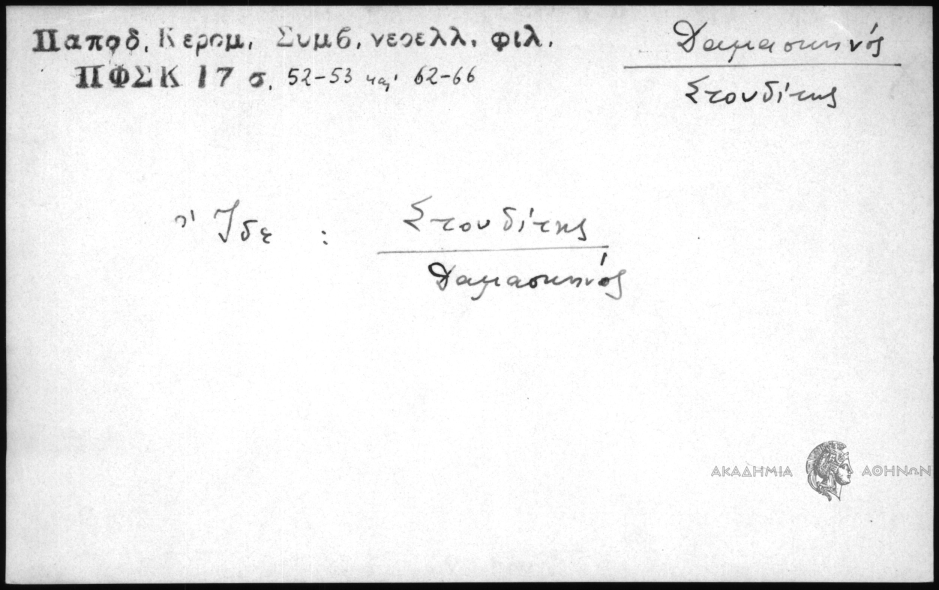 Παπαδ. Κεραμ. Συμβ. νεοελλ. φιλ.
ΠΦΣΚ 17 σ. 52-53 και 62-66
Δαμασκηνός
Στουδίτης
Ἴδε : Στουδίτης
Δαμασκηνός
ΑΚΑΔΗΜΙΑ ΑΘΗΝΩΝ